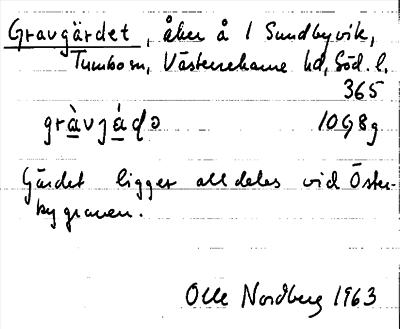 Gravgärdet, åker å 1 Sundbyvik,
Tumbo sn, Västerrekarne hd, Söd. l.
365
gràvjáḍə 10G8g
Gärdet ligger alldeles vid Öster-
bygraven.
Olle Nordberg 1963